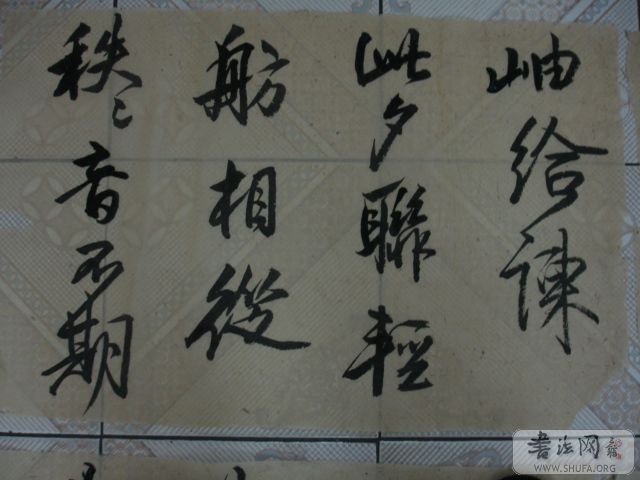 岫给諫
此夕聯輕
舫相從
秩〻音不期
书法网
WWW.SHUFA.ORG